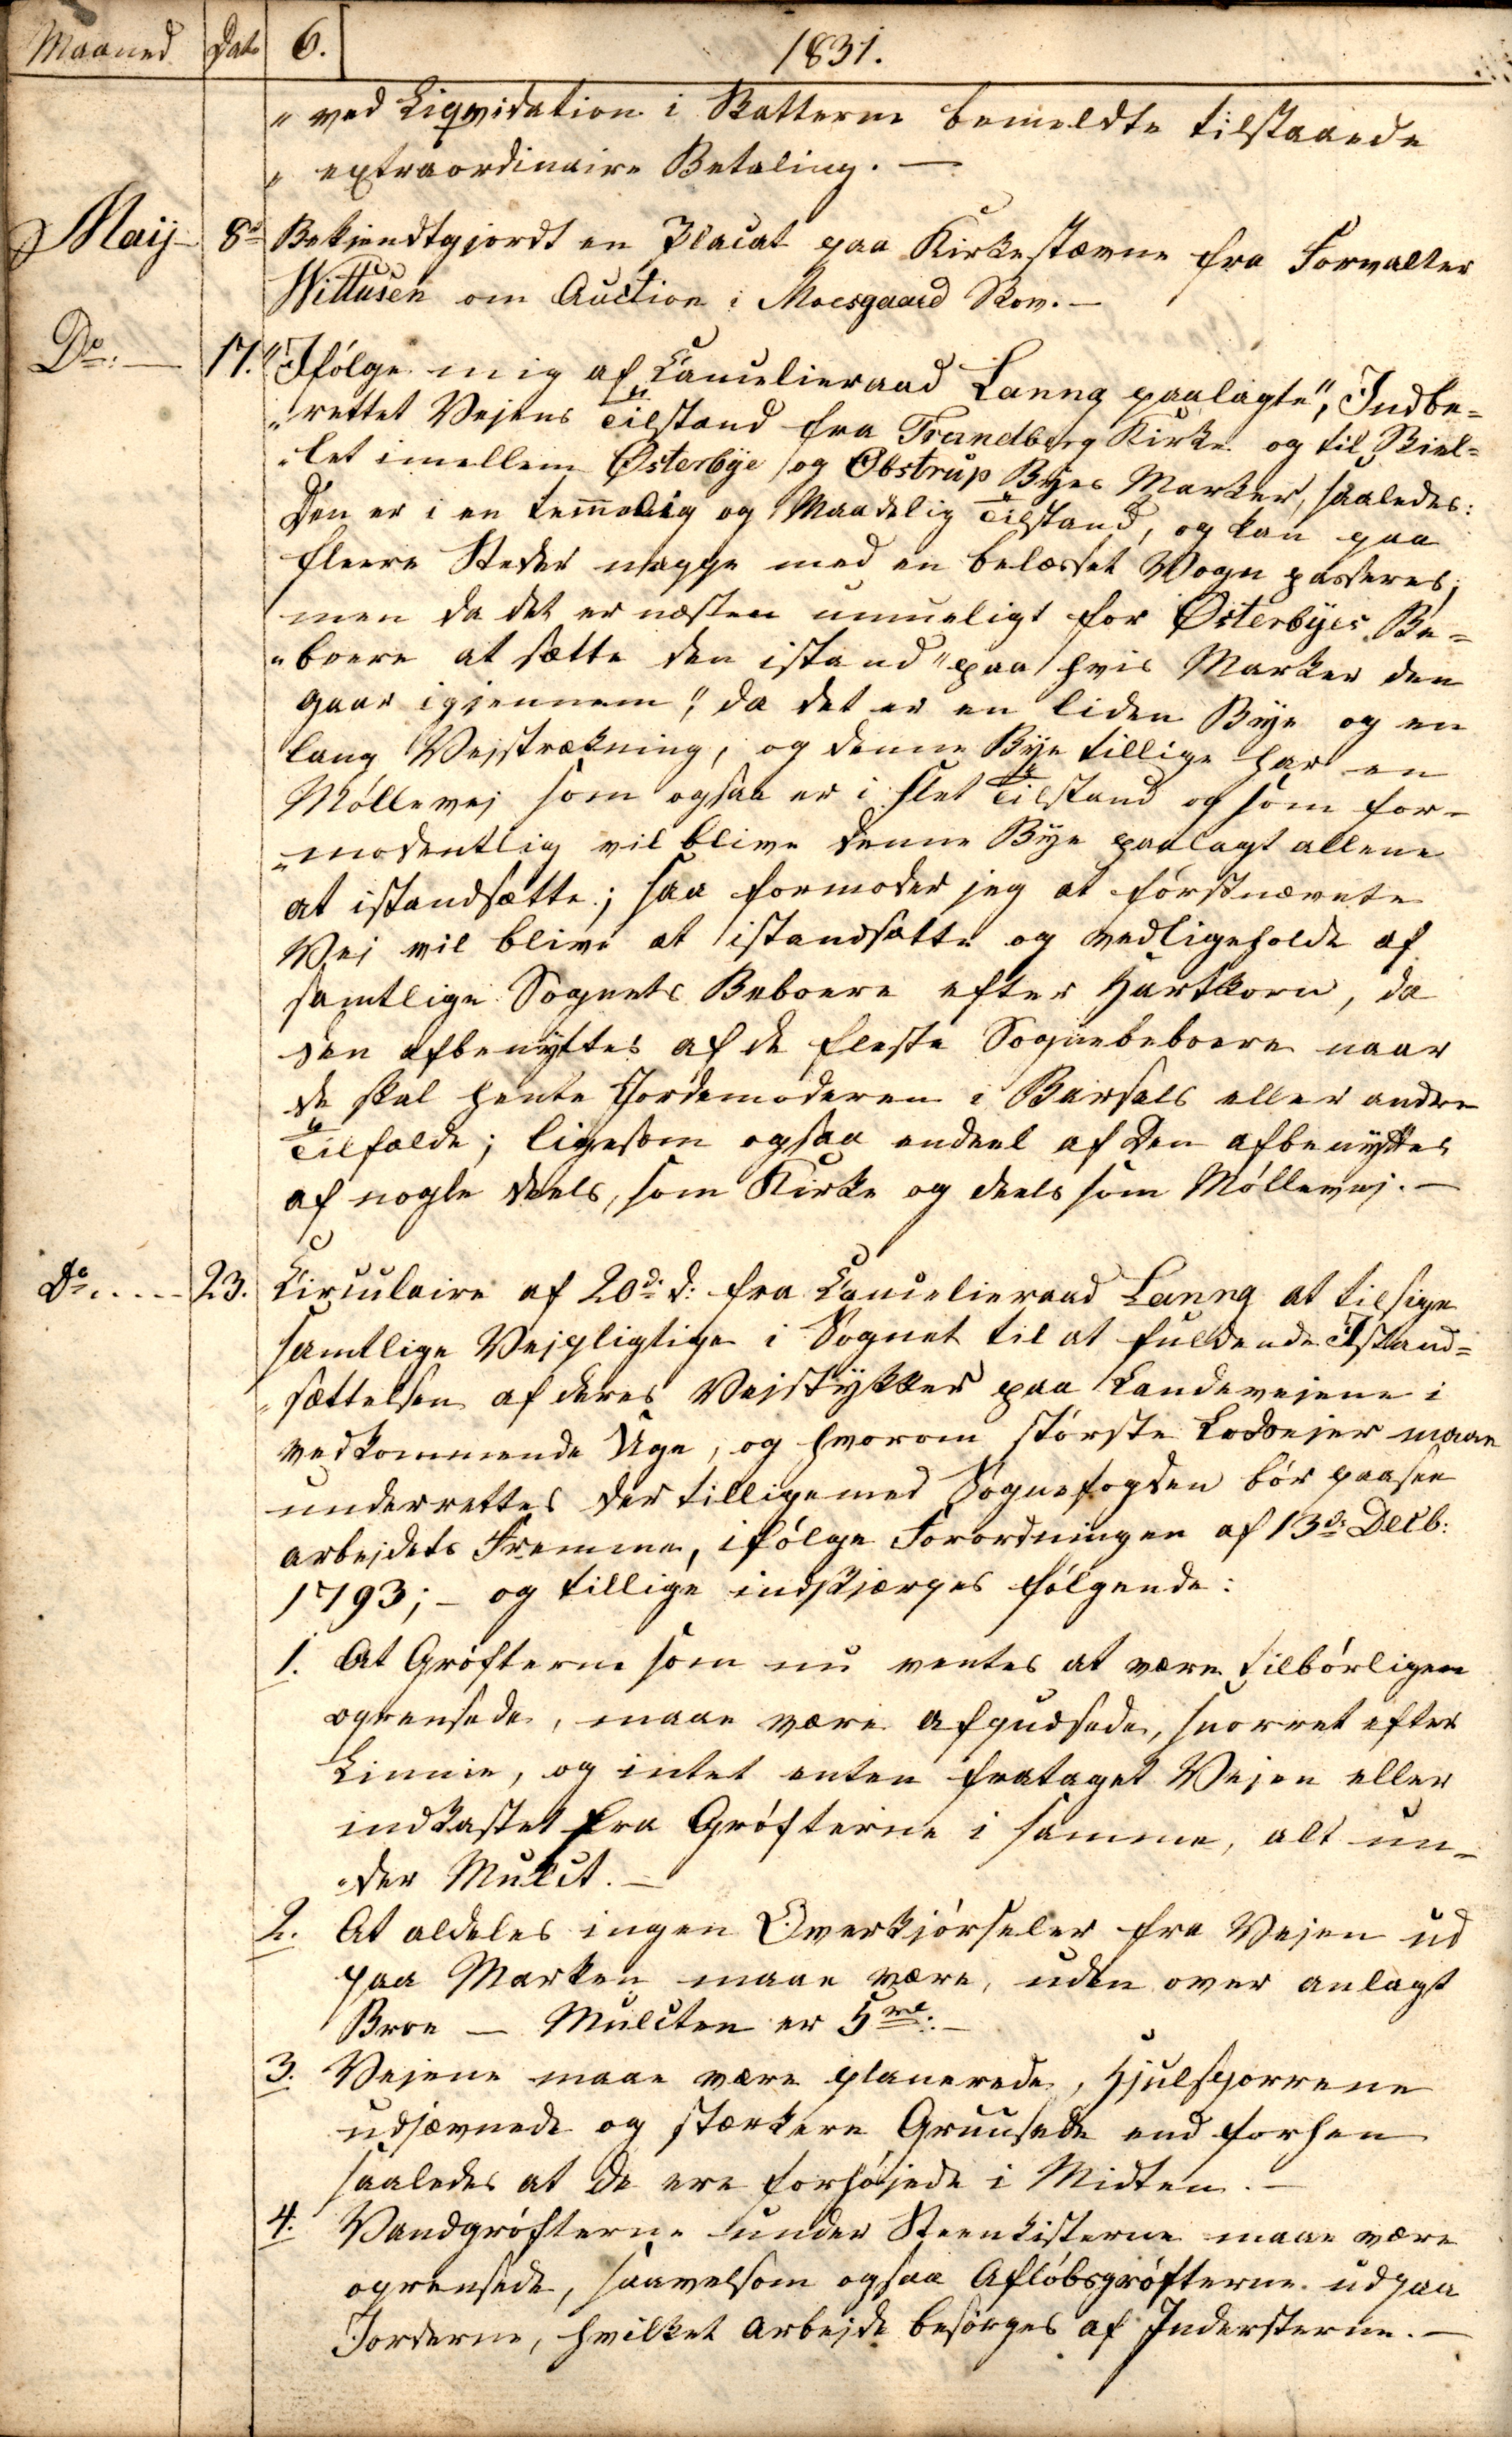 Maaned Dato 6. 1831.
" ved Liqvidation i Skatterne bemeldte tilstaaede
" extraordinaire Betaling. —
Maij 8de Bekjendtgjordt en Placat paa Kirkestævne fra Forvalter
Wittusen om Auction i Moesgaard Skov. —
Do: — 17. "Ifølge mig af Cancelieraad Lanng paalagte", Indbe=
"rettet Vejens Tilstand fra Trandberg Kirke og til Skiel=
"let imellem Østerbÿe og Obstrup Byes Marker, saaledes:
Den er i en temmelig og Maadelig Tilstand, og kan paa
fleere Steder neppe med en belæsset Vogn passeres;
men da det er næsten umueligt for Østerbÿes Be=
"boere at sætte den istand "paa hvis Marker den
gaar igjennem", da det er en liden Bÿe og en
lang Vejstrækning, og denne Bÿe tillige har en
Møllevej som ogsaa er i slet Tilstand og som for=
"modentlig vil blive denne Bÿe paalagt allene
at istandsætte; saa formoder jeg at førstnævnte
Vej vil blive at istandsætte og vedligeholde af
samtlige Sognets Beboere efter Hartkorn, da
den afbenÿttes af de fleste Sognebeboere naar
de skal hente Jordemoderen i Barsels eller andre
Tilfælde; ligesom ogsaa endeel af den afbenÿttes
af nogle deels, som Kirke og deels som Møllevej. —
Do. . . . . 23. Circulaire af 20de d: fra Cancelieraad Lanng at tilsige
samtlige Vejpligtige i Sognet til at fuldende Istand=
"sættelsen af deres Vejstÿkker paa Landevejene i
vedkommende Uge, og hvorom største Lodsejer maae
underrettes der tilligemed Sognefogden bør paasee
arbejdets Fremme, ifølge Forordningen af 13de Decb:
1793; – og tillige indskjærpes følgende:
1. At Grøfterne som nu ventes at være tilbørligen
oprensede, maae være afpudsede, snorret efter
Linnie, og intet enten frataget Vejen eller
indkastet fra Grøfterne i samme, alt un=
"der Mulct. —
2. At aldeles ingen Overkjørseler fra Vejen ud
paa Marken maae være, uden over anlagt
Broe — Mulcten er 5 rd: —
3. Vejene maae være planerede, Hjulsporrene
udjævnede og stærkere Gruusede end forhen
saaledes at de ere forhøjede i Midten. —
4. Vandgrøfterne under Steenkisterne maae være
oprensede, saavelsom ogsaa Afløbsgrøfterne udpaa
Jorderne, hvilket Arbejde besørges af Indersterne. —